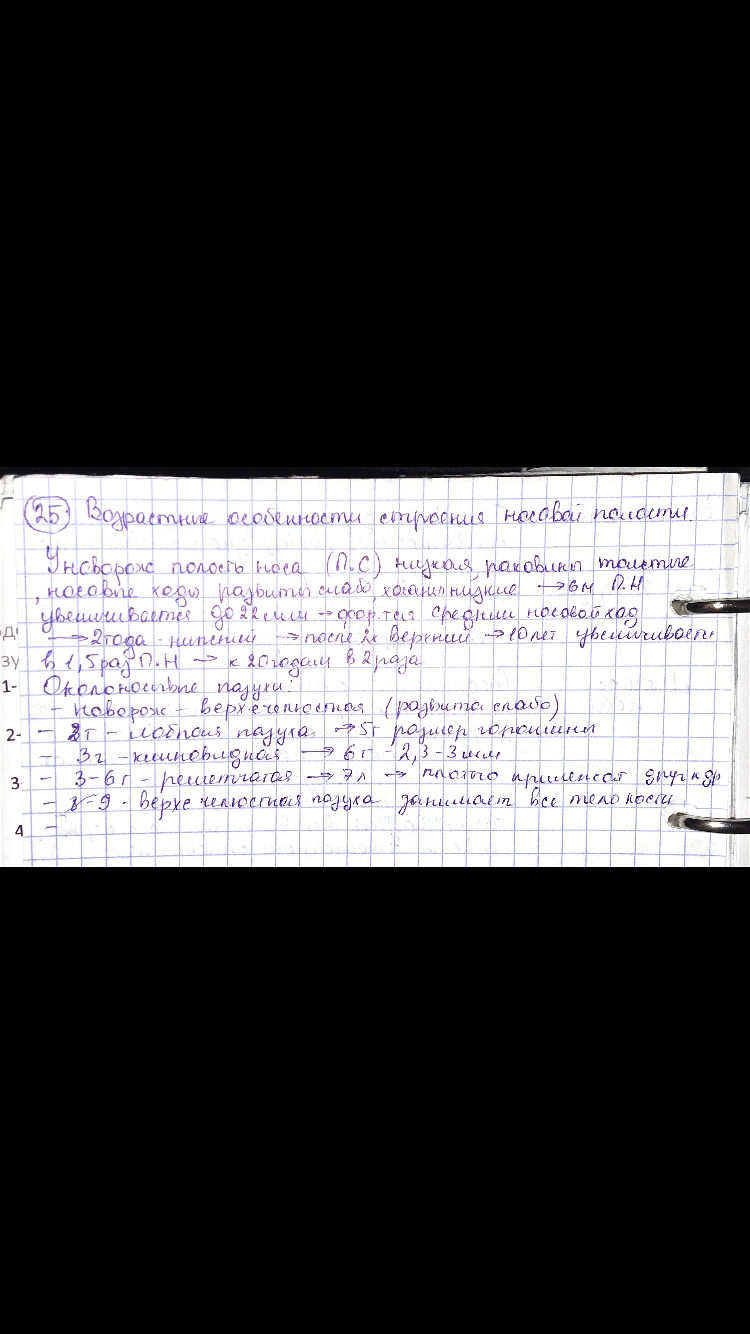 25 Возрастные особенности строения носовой полости.
У новорож полость носа (П.С) низкая, раковины толстые
, носовые ходы развиты слабо, хоаны низкие → 6м П.Н
увеличивается до 22 мм → фор.тся средний носовой ход
Д
→ 2 года - нижний → после 2х верхний → 10 лет увеличивается
ЗУ
в 1,5 раз П.Н → к 20 годам в 2 раза
1-
Околоносовые пазухи:
- Новорож - верхечелюстная (развита слабо)
2-
- 2г - лобная пазуха → 5г размер горошины
- 3г - клиновидная → 6г - 2,3-3 мм
3
- 3-6г - решетчатая → 7л → плотно прилежат друг к др
- 8-9 - верхечелюстная пазуха занимает все тело кости
4
-